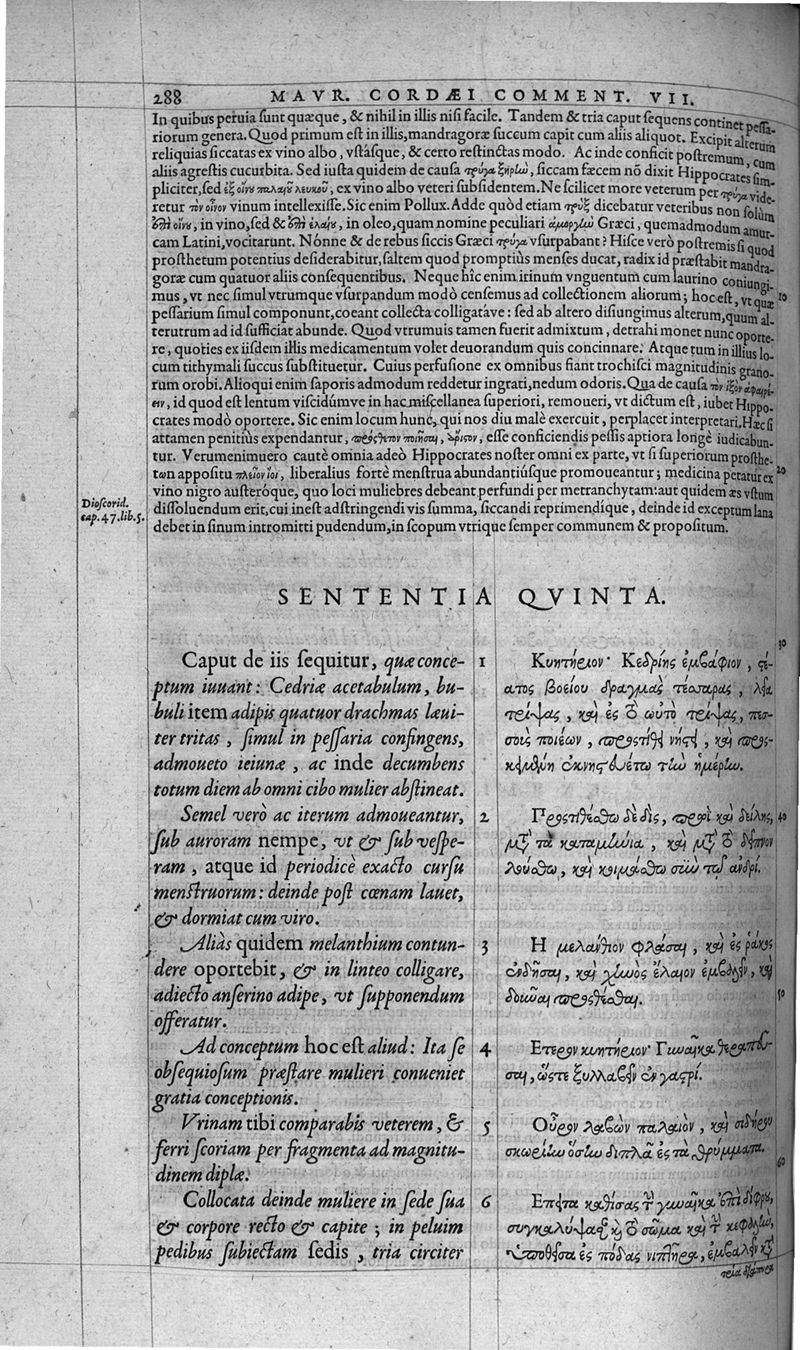 288 MAVR. CORDÆI COMMENT. VII.
In quibus peruia sunt quæque, & nihil in illis nisi facile. Tandem & tria caput sequens continet pessa-
riorum genera. Quod primum est in illis, mandragoræ succum capit cum aliis aliquot. Excipit alterum
reliquias siccatas ex vino albo, vstásque, & certo restinctas modo. Ac inde conficit postremum, cum
aliis agrestis cucurbita. Sed iusta quidem de causa τρύγα ξηρὴν, siccam fæcem nō dixit Hippocrates sim-
pliciter, sed ἐξ οἴνου παλαιοῦ λευκοῦ, ex vino albo veteri subsidentem. Ne scilicet more veterum per τρύγα vide-
retur τὸν οἶνον vinum intellexisse. Sic enim Pollux. Adde quòd etiam τρὺξ dicebatur veteribus non solùm
ἐπὶ οἴνου, in vino, sed & ἐπὶ ἐλαίου, in oleo, quam nomine peculiari ἀμοργὴν Græci, quemadmodum amur-
cam Latini, vocitarunt. Nónne & de rebus siccis Græci τρύγα vsurpabant? Hisce verò postremis si quod
prosthetum potentius desiderabitur, saltem quod promptius menses ducat, radix id præstabit mandra-
goræ cum quatuor aliis consequentibus. Neque hîc enim irinum vnguentum cum laurino coniungi-
mus, vt nec simul vtrumque vsurpandum modò censemus ad collectionem aliorum; hoc est, vt quæ 10
pessarium simul componunt, coeant collecta colligatáve: sed ab altero disiungimus alterum, quum al-
terutrum ad id sufficiat abunde. Quod vtrumuis tamen fuerit admixtum, detrahi monet nunc oporte-
re, quoties ex iisdem illis medicamentum volet deuorandum quis concinnare. Atque tum in illius lo-
cum tithymali succus substituetur. Cuius perfusione ex omnibus fiant trochisci magnitudinis grano-
rum orobi. Alioqui enim saporis admodum reddetur ingrati, nedum odoris. Qua de causa τὸν ἰξὸν ἀφαιρέ-
ειν, id quod est lentum viscidúmve in hac miscellanea superiori, remoueri, vt dictum est, iubet Hippo-
crates modò oportere. Sic enim locum hunc, qui nos diu malè exercuit, perplacet interpretari. Hæc si
attamen penitiùs expendantur, πρόσθετον ποιῆσαι, ἄριστον, esse conficiendis pessis aptiora longè iudicabun-
tur. Verumenimuero cautè omnia adeò Hippocrates noster omni ex parte, vt si superiorum prosthe-
των appositu πλεῖον ἴοι, liberalius fortè menstrua abundantiúsque promoueantur; medicina petatur ex 20
vino nigro austeróque, quo loci muliebres debeant perfundi per metranchytam: aut quidem æs vstum
dissoluendum erit, cui inest adstringendi vis summa, siccandi reprimendique, deinde id exceptum lana
debet in sinum intromitti pudendum, in scopum vtrique semper communem & propositum.
Dioscorid.
cap. 47. lib. 5.
SENTENTIA QVINTA.
30
Caput de iis sequitur, quæ conce-
ptum iuuant: Cedriæ acetabulum, bu-
buli item adipis quatuor drachmas læui-
ter tritas, simul in pessaria confingens,
admoueto ieiunæ, ac inde decumbens
totum diem ab omni cibo mulier abstineat.
Semel verò ac iterum admoueantur,
sub auroram nempe, vt & sub vespe-
ram, atque id periodicè exacto cursu
menstruorum: deinde post cœnam lauet,
& dormiat cum viro.
Aliàs quidem melanthium contun-
dere oportebit, & in linteo colligare,
adiecto anserino adipe, vt supponendum
offeratur.
Ad conceptum hoc est aliud: Ita se
obsequiosum præstare mulieri conueniet
gratia conceptionis.
Vrinam tibi comparabis veterem, &
ferri scoriam per fragmenta ad magnitu-
dinem diplæ.
Collocata deinde muliere in sede sua
& corpore recto & capite; in peluim
pedibus subiectam sedis, tria circiter
1 Κυητήριον· Κεδρίης ἐμβάφιον, ϛέ-
ατος βοείου δραγμὰς τέσσαρας, λεῖα
τρίψας, καὶ ἐς τὸ ωὐτὸ τρίψας, πεσ-
σοὺς ποιέων, προστιθεῖ νήστει, καὶ προς-
κειμένη ἐκνηστευέτω τὴν ἡμέρην.
2 Προστιθέσθω δὲ δὶς, πρωῒ καὶ δείλης, 40
μετὰ τὰ καταμήνια, καὶ μετὰ τὸ δεῖπνον
λούσθω, καὶ κοιμάσθω σὺν τῷ ἀνδρί.
3 Η μελάνθιον φλάσαι, καὶ ἐς ῥάκος
ἐνδῆσαι, καὶ χηνὸς ἔλαιον ἐμβαλεῖν, καὶ
δοῦναι προσθέσθαι. 50
4 Ετερον κυητήριον· Γυναῖκα θεραπεῦ-
σαι, ὥςτε ξυλλαβεῖν ἐν γαστρί.
5 Οὖρον λαβὼν παλαιὸν, καὶ σιδήρου
σκωρίην ὅσον διπλᾶ ἐς τὰ θρύμματα.
60
6 Επειτα καθίσας τὴν γυναῖκα ἐπὶ δίφρου,
συγκαλύψας καὶ τὸ σῶμα καὶ τὴν κεφαλὴν,
ὑποθεῖσα ἐς πόδας νιπτῆρα, ἐμβαλεῖν κατὰ
τρία